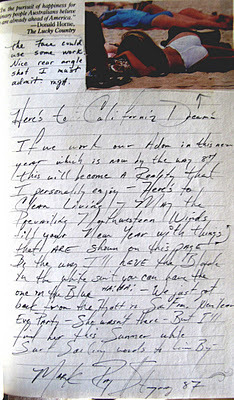 "In the pursuit of happiness for
ordinary people Australians believe
are already ahead of America."
—Donald Horne,
The Lucky Country
the face could
use some work
Nice rear angle
shot I must
admit
Here's to California Dreams
If we work our in this new
year which is now by the way 87
this will become A Reality that
I personally enjoy - Here's to
Clean Living / May the
Prevailing Northwestern Winds
fill your New Year with things
that ARE Shown on this page
By the way I'll HAVE the Blonde
in the white suit you can have the
one in the Blue HA! HA! - We just got
back from the Hyatt in San Fran New Years
Eve Party - She wasn't there - But I'll
find her this Summer while
Surf words to live By-
Mark 87